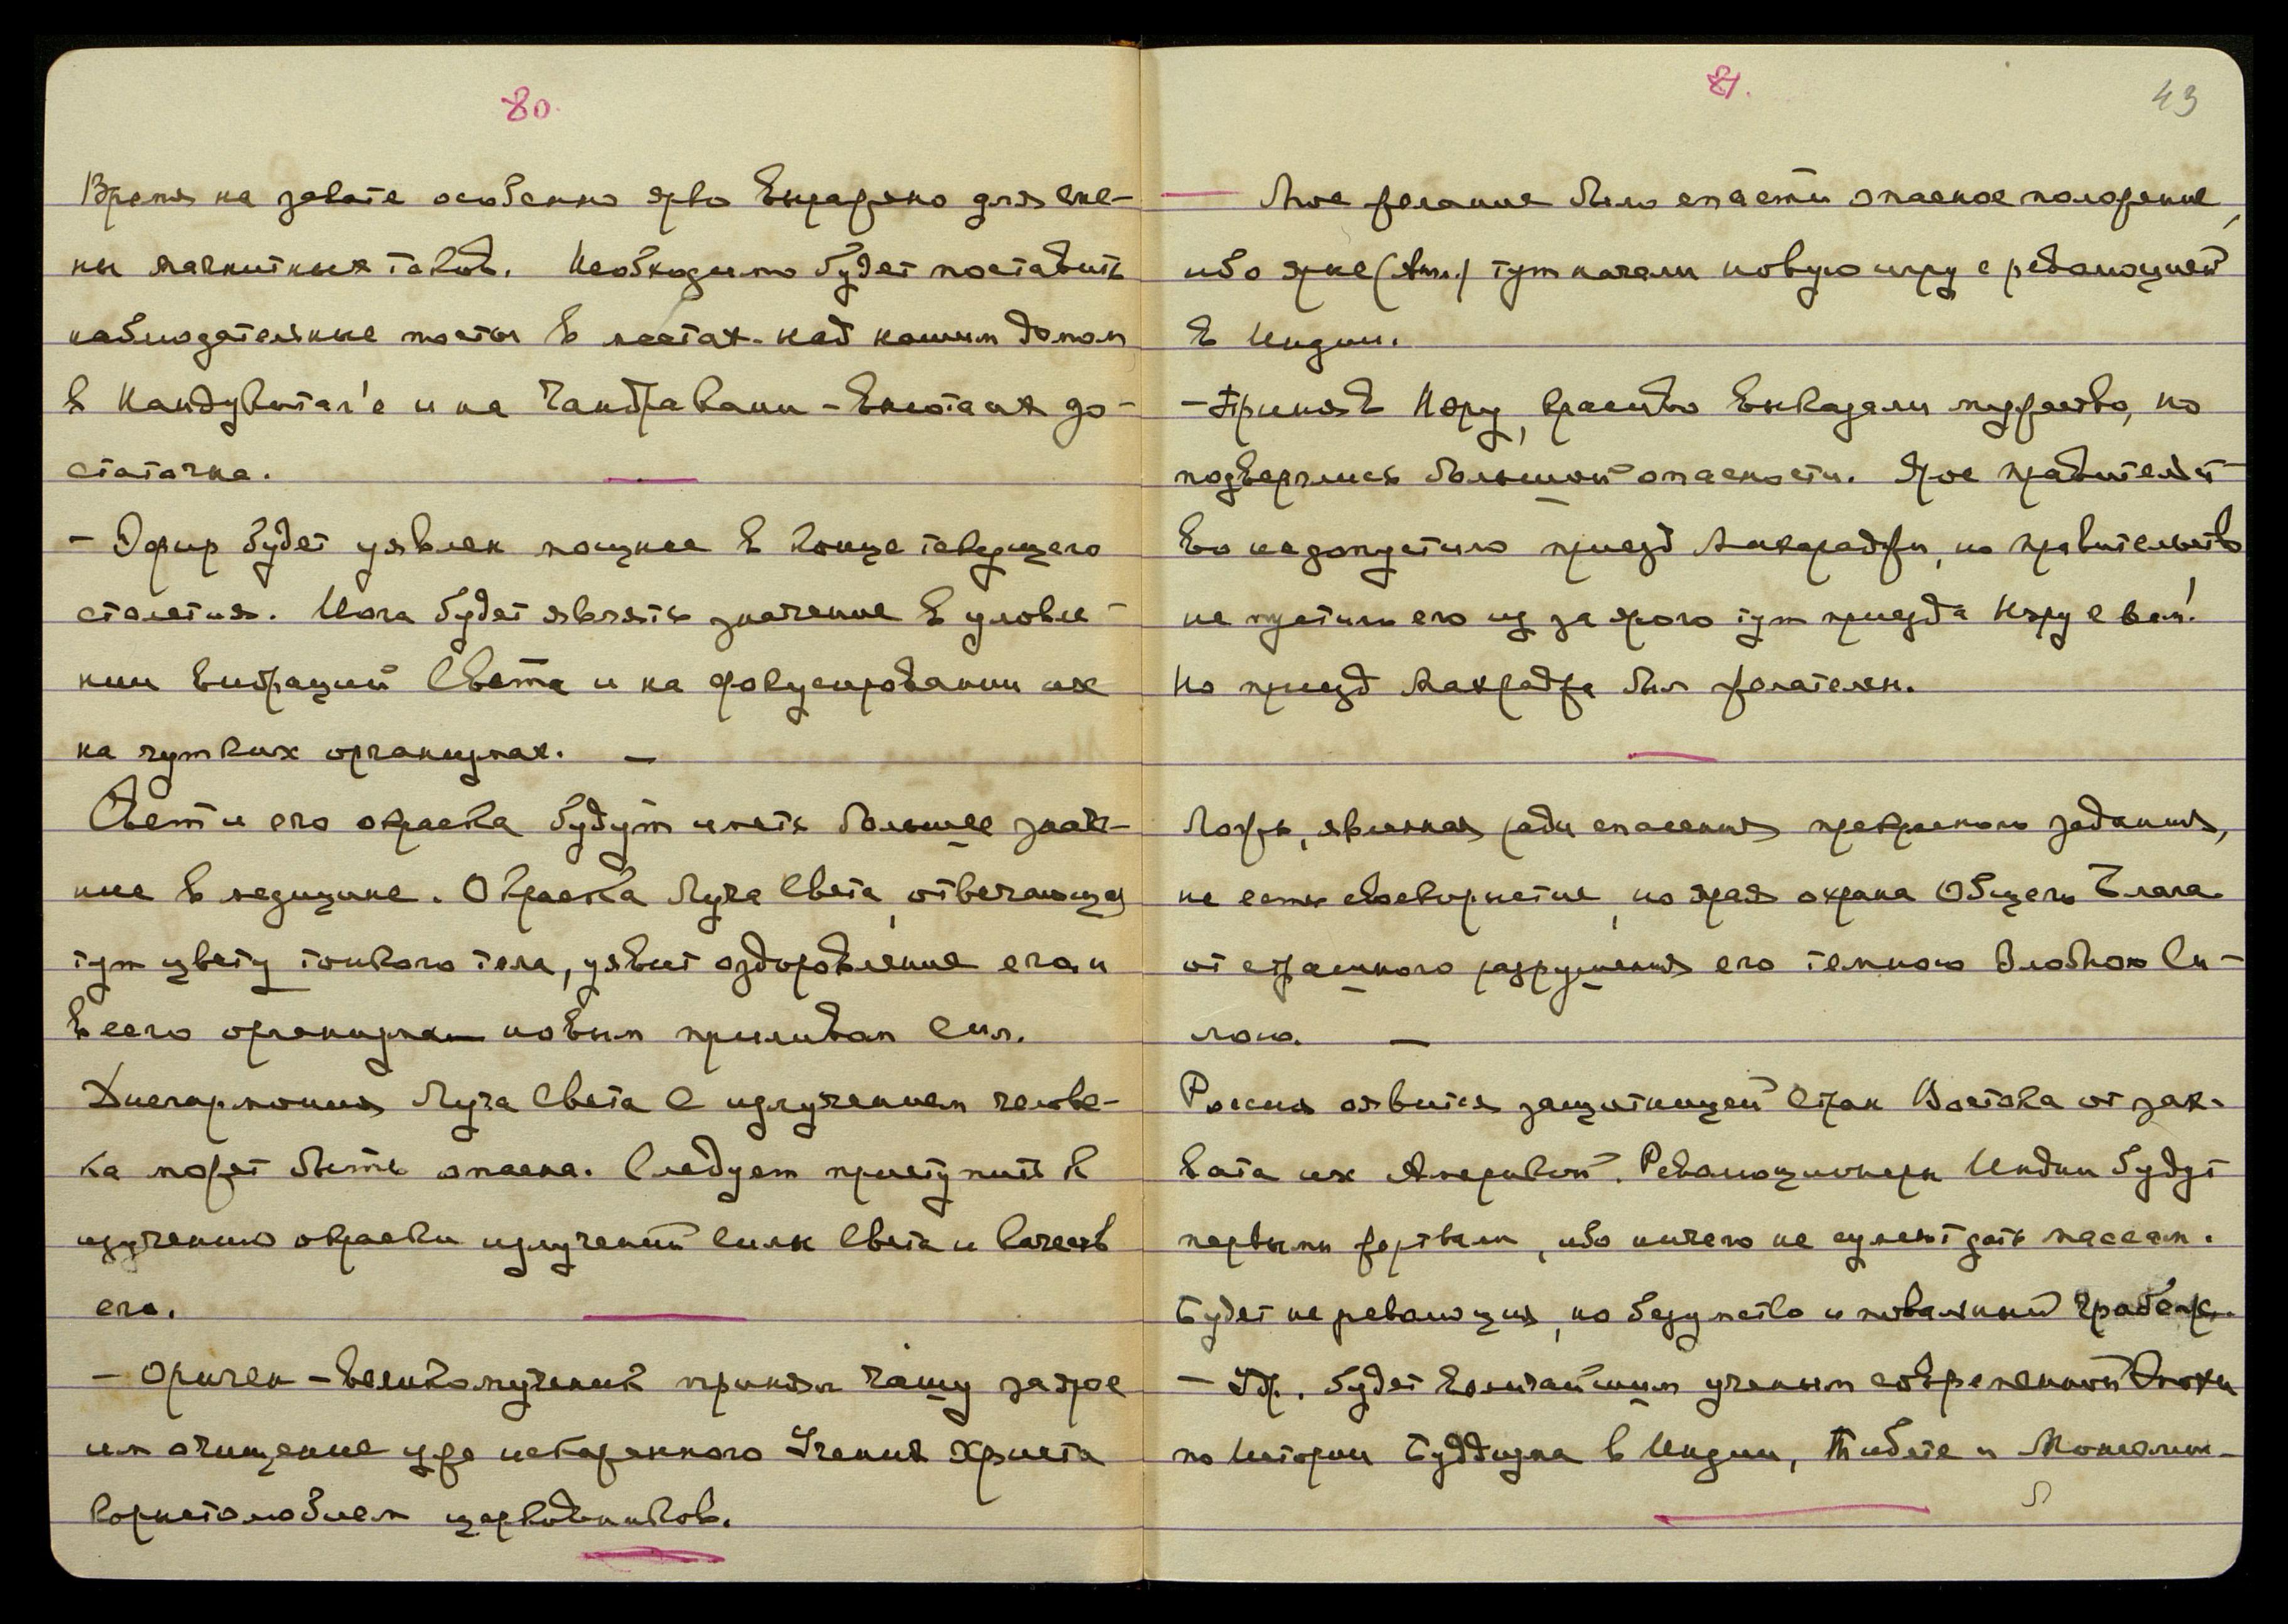 80.
Время на закате особенно ярко выражено для сме-
ны магнитных токов. Необходимо будет поставить
наблюдательные посты в местах. над нашим домом
в Кандукитал'е и на Чандракани - высота их до-
статочна.
- Эфир будет уявлен мощнее в конце текущего
столетия. Йога будет являть значение в уловле-
нии вибраций Света и на фокусировании их
на чутких организмах. —
Свет и его окраска будут иметь большее значе-
ние в медицине. Окраска Луча Света, отвечающая
тут цвету тонкого тела, уявит оздоровление его и
всего организма новым приливом сил.
Дисгармония Луча Света с излучением челове-
ка может быть опасна. Следует приступить к
изучению окраски излучений Силы Света и качеств
его.
- Ориген - великомученик принял чашу за ярое
им очищение уже искаженного Учения Христа
корыстолюбием церковников.
81.
43
— Мое желание было спасти опасное положение,
ибо яркие (Ам.) тут начали новую игру с революцией
в Индии.
- Приняв Неру, красиво выказали мужество, но
подверглись большой опасности. Ярое правительст-
во не допустило приезд Махараджи, но правительство
не пустило его из за ярого тут приезда Неру с вам!
Но приезд Махараджа был желателен.
Ложь, явленная ради спасения прекрасного задания,
не есть своекорыстие, но ярая охрана Общего Блага
от страшного разрушения его темною Злобною Си-
лою. —
Россия оявится защитницей стран Востока от зах-
вата их Америкой. Революционеры Индии будут
первыми жертвами, ибо ничего не сумеют дать массам.
Будет не революция, но безумство и повальный грабёж.
- Юр. будет величайшим ученым современной Эпохи
по Истории Буддизма в Индии, Тибете и Монголии-